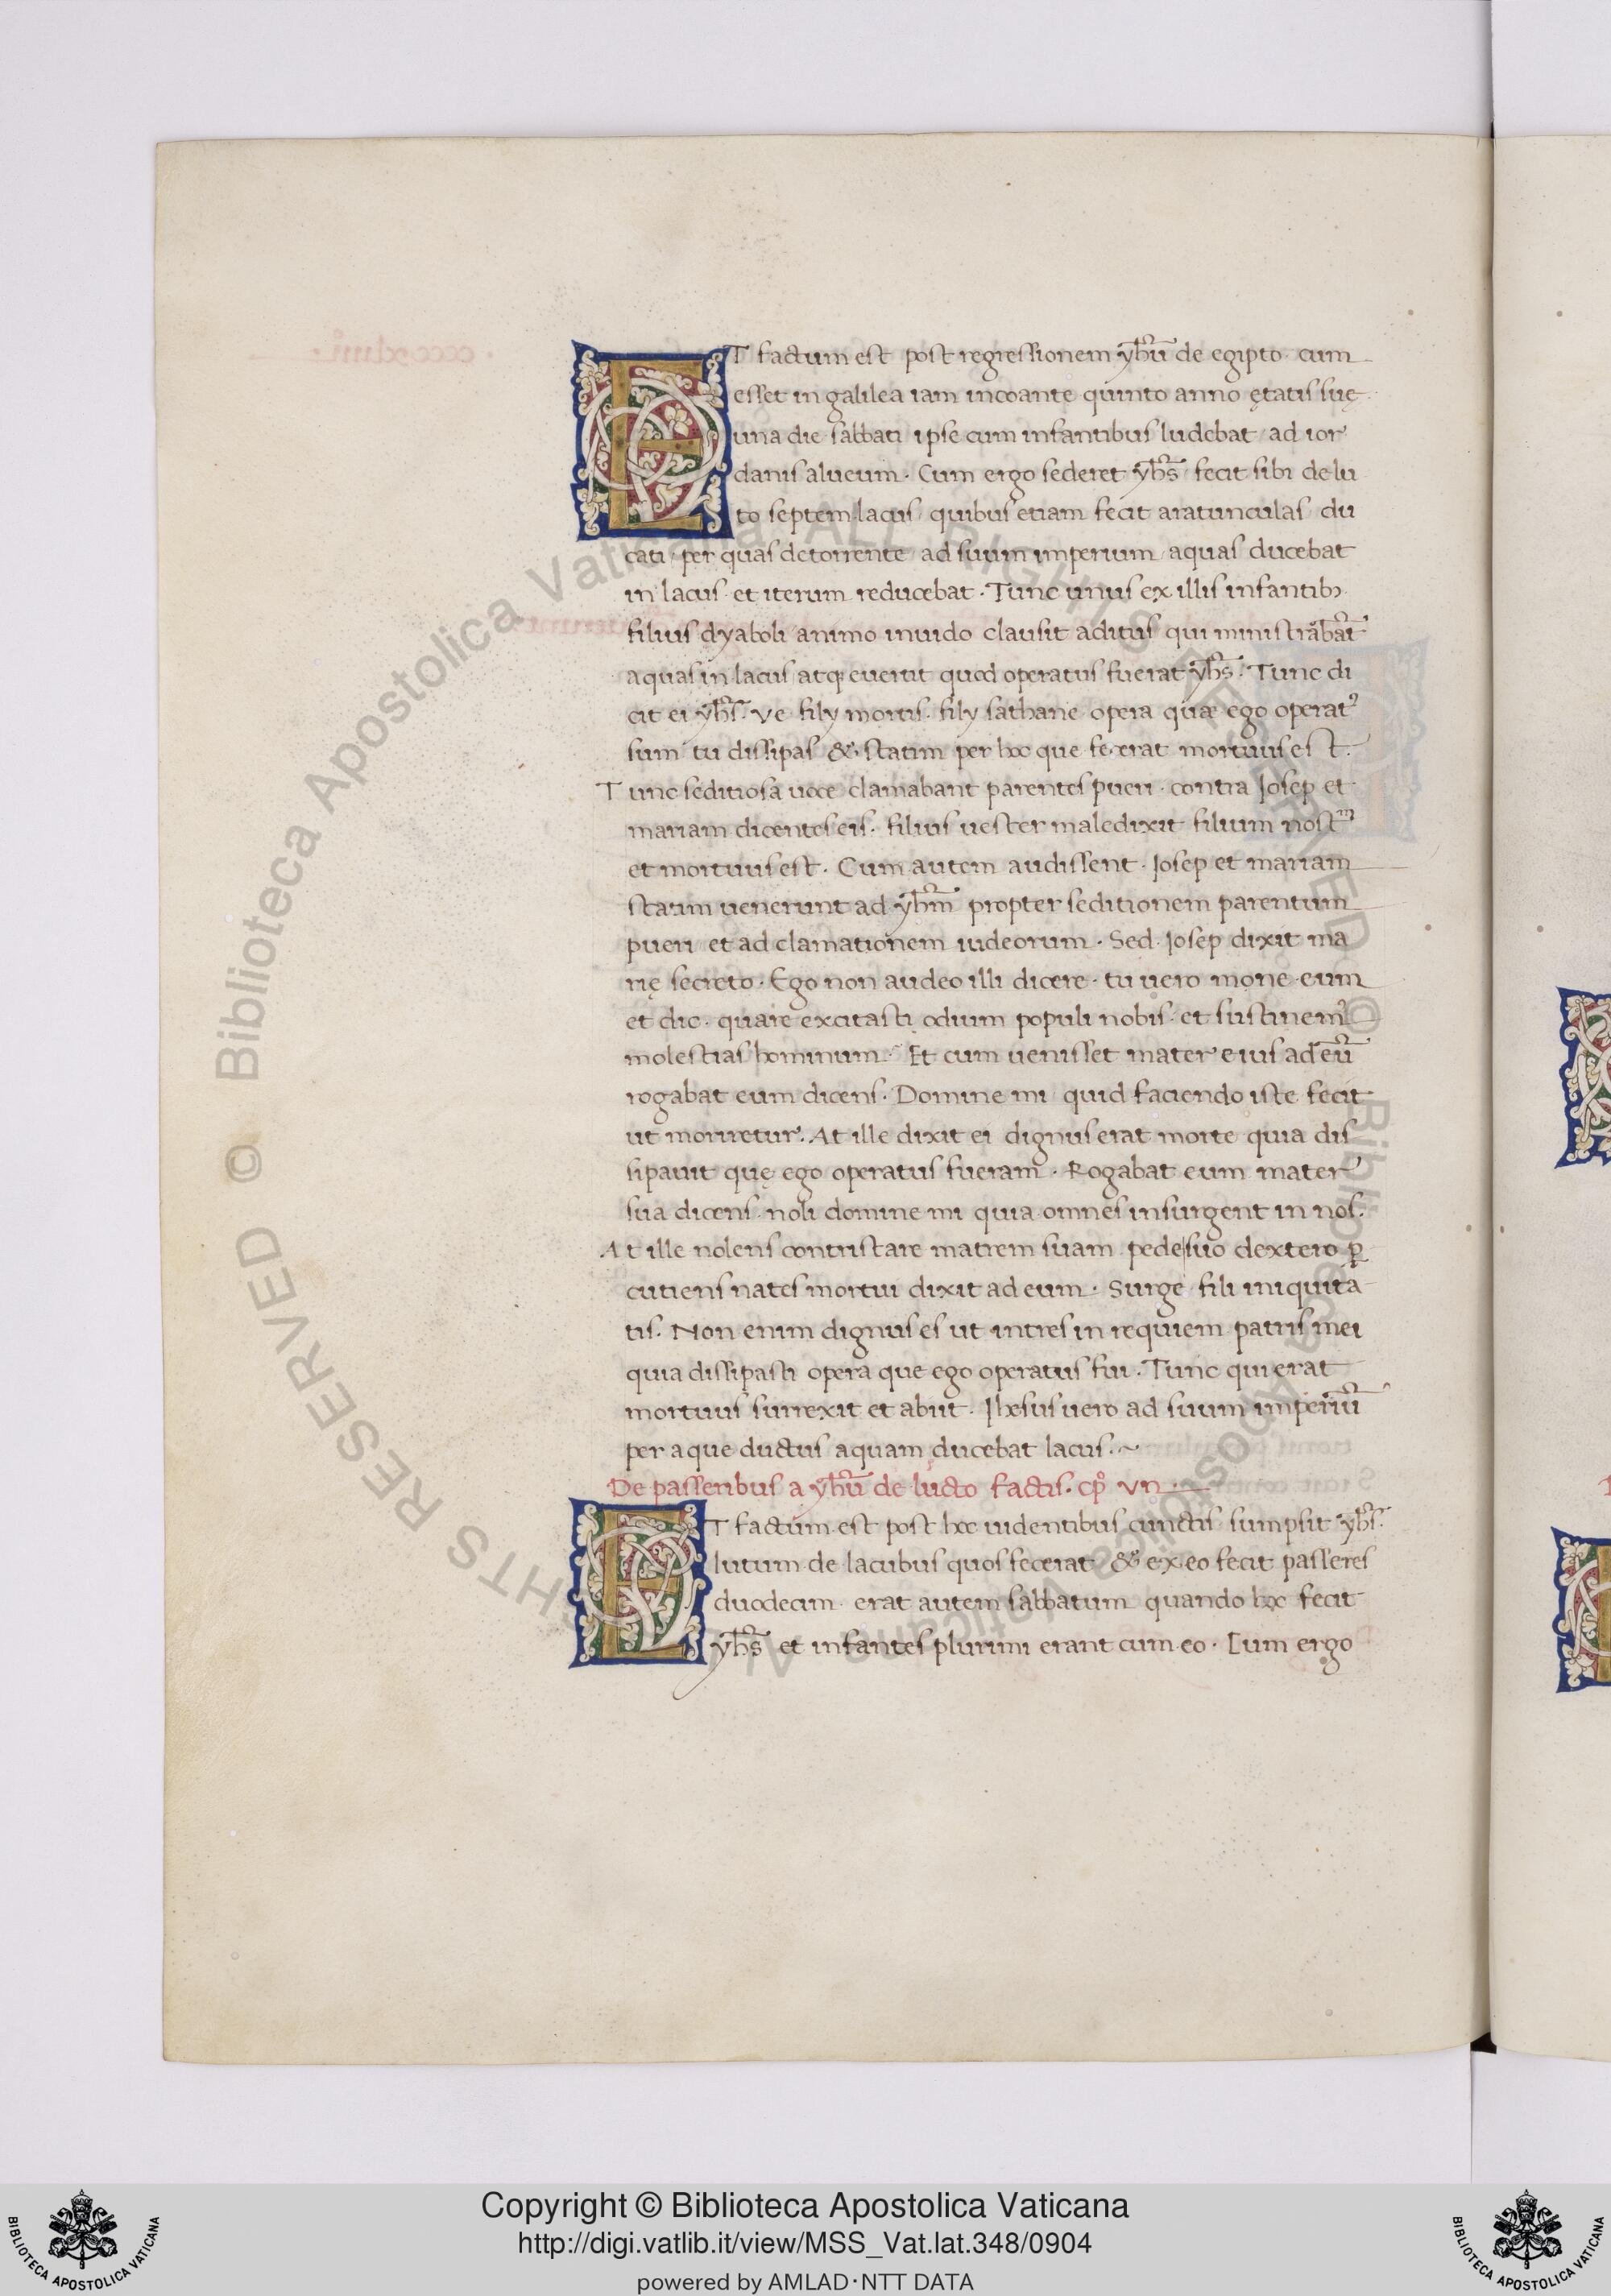 ET factum est post regressionem yhū de egipto cum
esset in galilea iam incoante quinto anno ętatis suę
una die sabbati ipse cum infantibus ludebat ad ior
danis alueum. Cum ergo sederet yhs̄ fecit sibi de lu
to septem lacus quibus etiam fecit aratunculas du
cati per quas de torrente ad suum imperium aquas ducebat
in lacus et iterum reducebat. Tunc unus ex illis infantibꝫ
filius dyaboli animo inuido clausit aditus qui ministrābāt
aquas in lacus atqꝫ euertit quod operatus fuerat yhs̄. Tunc di
cit ei yhs̄. Ve fily mortis. fily sathane opera quæ ego operatꝰ
sum tu dissipas & statim per hoc que fecerat mortuus est.
Tunc seditiosa uoce clamabant parentes pueri. contra Josep et
mariam dicentes eis. filius uester maledixit filium nostᵐ
et mortuus est. Cum autem audissent. Josep et mariam
statim uenerunt ad yhm̄ propter seditionem parentum
pueri et ad clamationem iudeorum. Sed Josep dixit ma
rię secreto. Ego non audeo illi dicere. tu uero mone eum
et dic. quare excitasti odium populi nobis. et sustinemꝰ
molestias hominum. Et cum uenisset mater eius ad eū
rogabat eum dicens. Domine mi quid faciendo iste fecit
ut moriretur. At ille dixit ei dignus erat morte quia dis
sipauit quę ego operatus fueram. Rogabat eum mater
sua dicens. noli domine mi quia omnes insurgent in nos.
At ille nolens contristare matrem suam pede suo dextero ꝑ
cutiens nates mortui dixit ad eum. Surge fili iniquita
tis. Non enim dignus es ut intres in requiem patris mei
quia dissipasti opera que ego operatus fui. Tunc qui erat
mortuus surrexit et abiit. Jhesus uero ad suum imperiū
per aque ductus aquam ducebat lacus.~
De passeribus a yhū de lucto factis. cp̊ VII
ET factum est post hoc uidentibus cunctis sumpsit yhs̄.
lutum de lacubus quos fecerat & ex eo fecit passeres
duodecim. erat autem sabbatum quando hoc fecit
yhs̄ et infantes plurimi erant cum eo. Cum ergo
© Biblioteca Apostolica Vaticana ALL RIGHTS RESERVED © Biblioteca Apostolica Vaticana ALL RIGHTS RESERVED
Copyright © Biblioteca Apostolica Vaticana
http://digi.vatlib.it/view/MSS_Vat.lat.348/0904
powered by AMLAD·NTT DATA
BIBLIOTECA APOSTOLICA VATICANA
BIBLIOTECA APOSTOLICA VATICANA